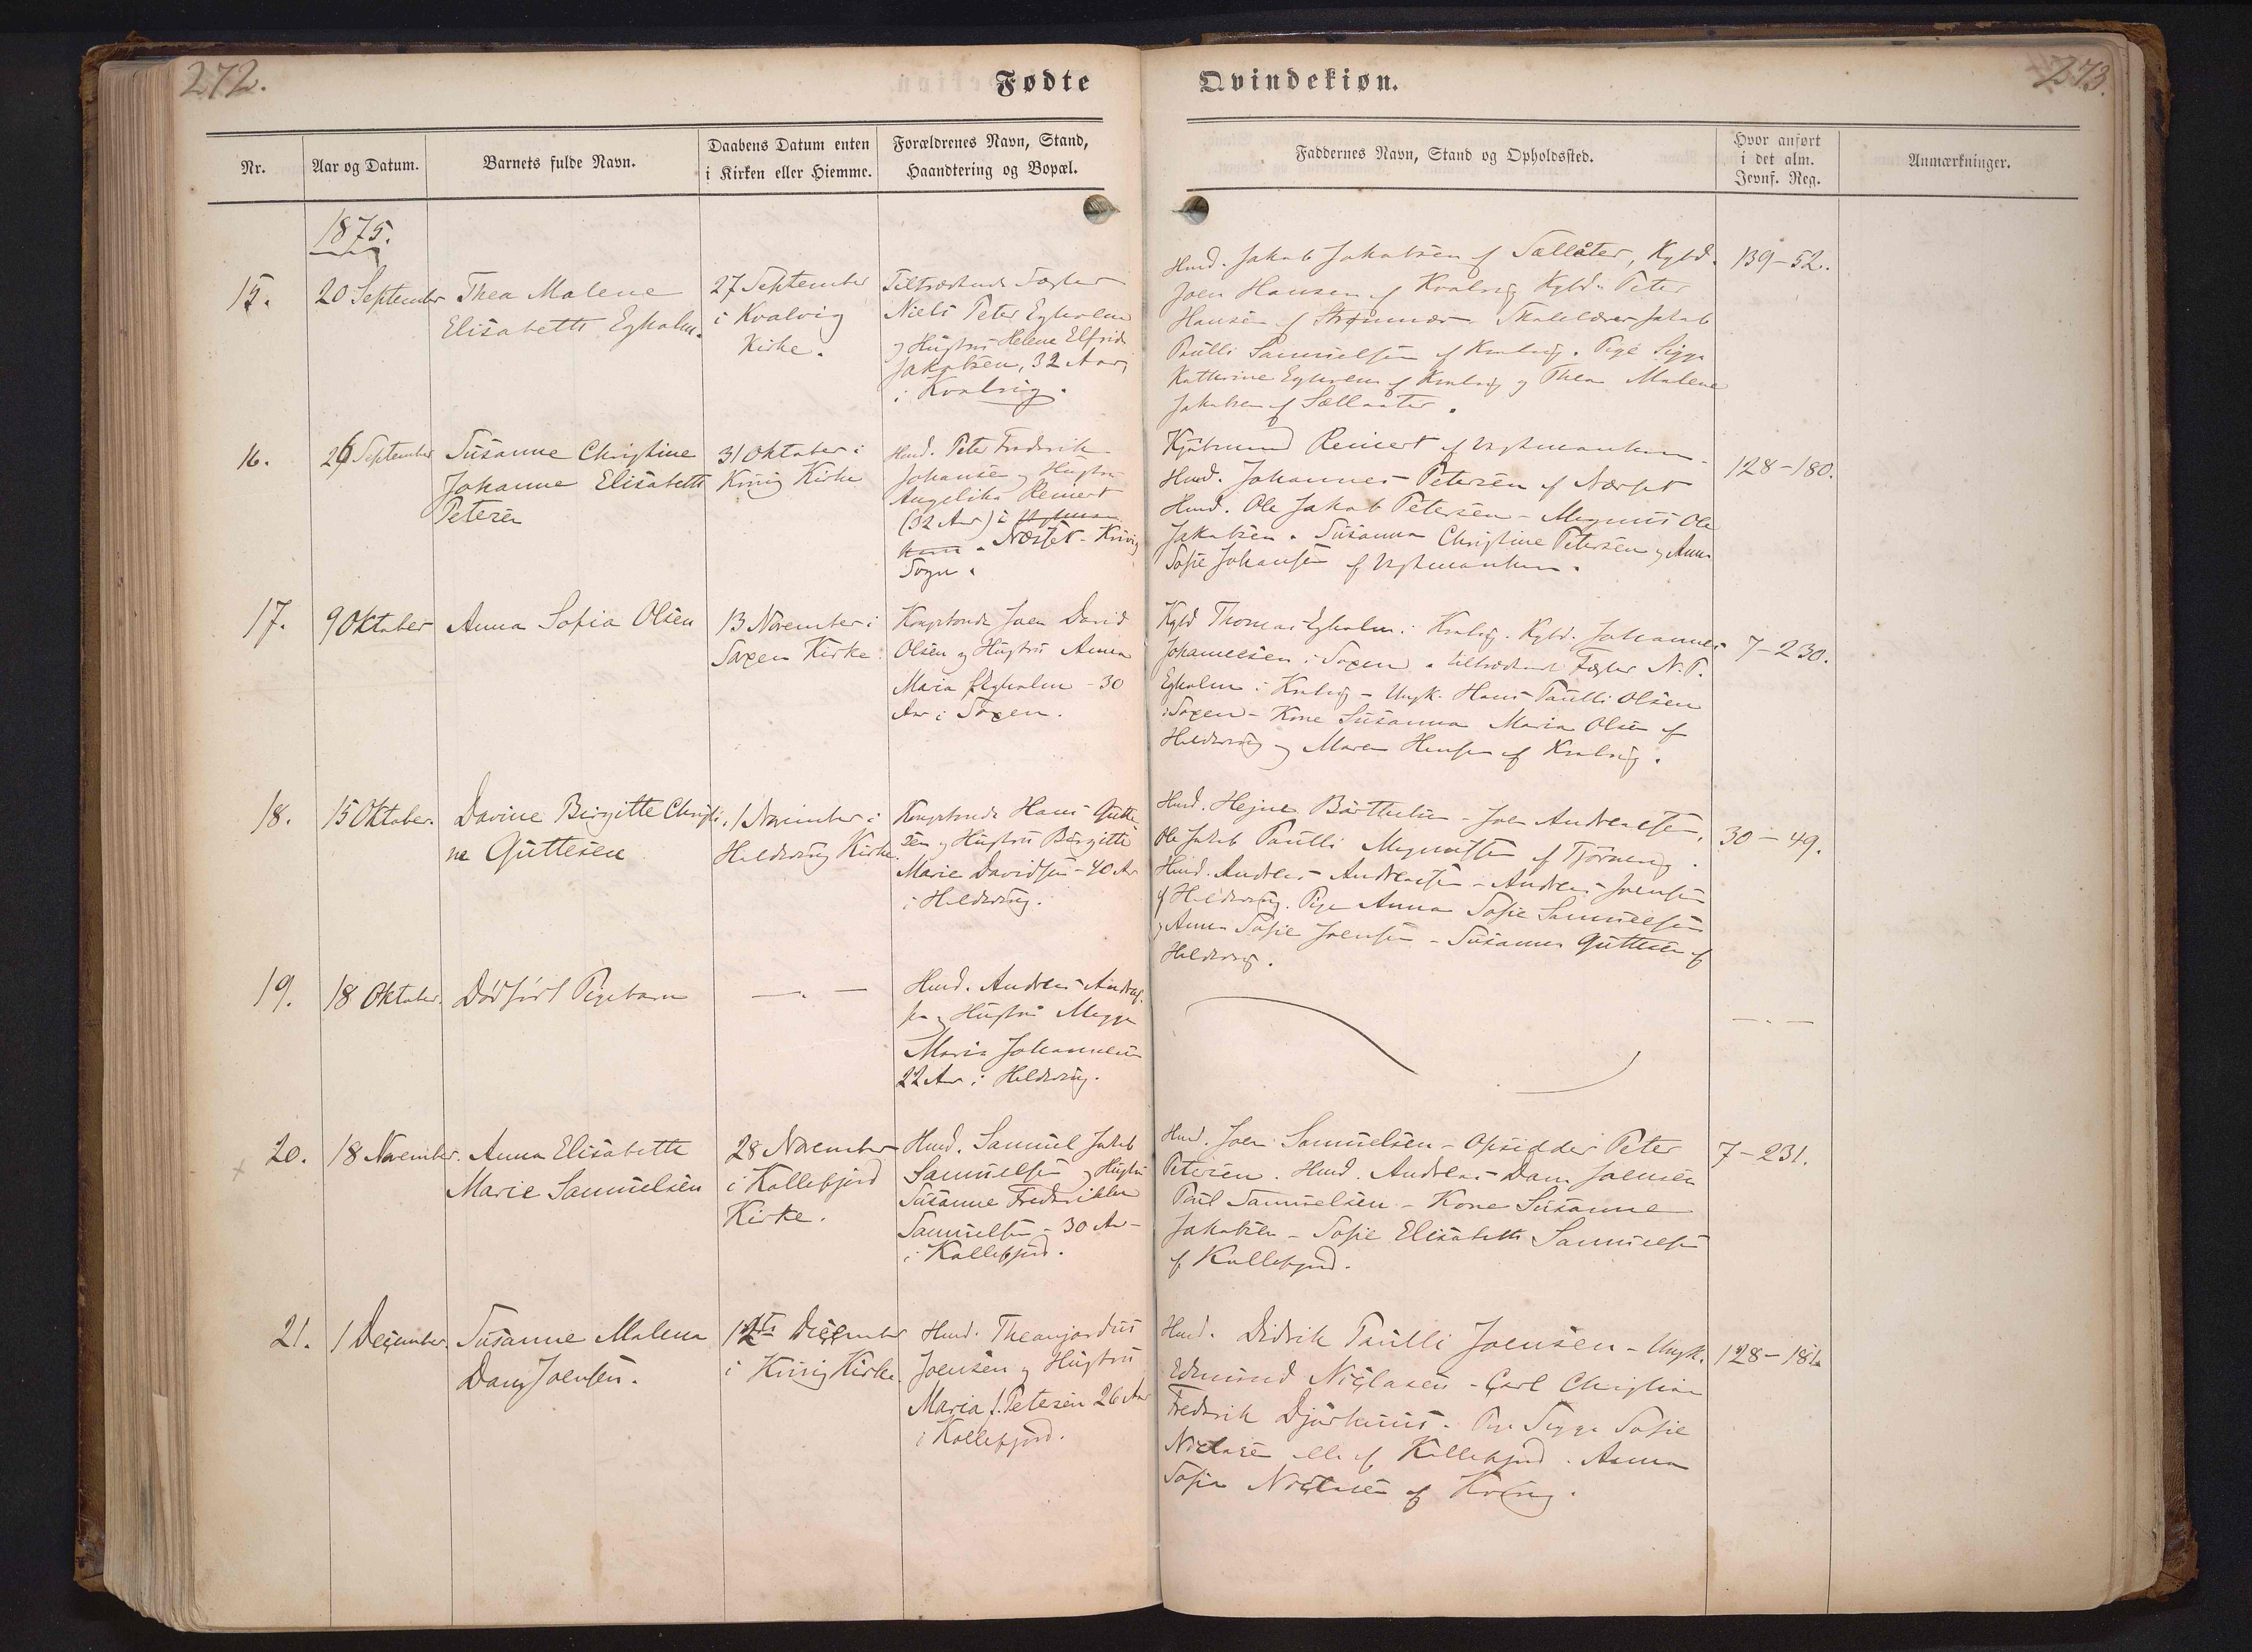 272.
Fødte
Qvindekiøn.
273.
Nr.
Aar og Datum.
Barnets fulde Navn.
Daabens Datum enten
i Kirken eller Hiemme.
Forældrenes Navn, Stand,
Haandtering og Bopæl.
Faddernes Navn, Stand og Opholdssted.
Hvor anført
i det alm.
Jevnf. Reg.
Anmærkninger.
1875.
15.
20 September
Thea Malene
Elisabeth Egholm.
27 September
i Kvalvig
Kirke.
Niels Peter Egholm
og Hustru Helene Elfrida
Jakobsen, 32 Aar,
i Kvalvig.
Hmd. Jakob Jakobsen af Sællåter, Kgbd.
Joen Hansen af Kvalvig Kgbd. Peter
Hansen af Strømnæs. Skolelærer Jakob
Poulli Samuelsen af Kvalvig. Pige Sigga
Katherine Egholm af Kvalvig og Thea Malene
Jakobsen af Sællaater.
139-52.
16.
26 September
Susanne Christine
Johanne Elisabeth
Petersen
31 Oktober i
Kirke
Hmd. Peter Frederik
Johansen og Hustru
Angelika Reinert
(32 Aar) i
Sogn.
Reinert af Vestmanhavn.
Hmd. Johannes Petersen af
Hmd. Ole Jakob Petersen - Magnus Ole
Jakobsen. Susanna Christine Petersen og Anna
Sofie Johansen af Vestmanhavn.
128-180.
17.
9 Oktober
Anna Sofia Olsen
13 November i
Saxen Kirke.
Kongsbonde Joen David
Olsen og Hustru Anna
Maria Egholm - 30
Aar i Saxen.
Kgbd Thomas Egholm i Kvalvig. Kgbd. Johannes
Johannesen i Saxen. tiltrædende Fæster N. P.
Egholm i Kvalvig - Ungk. Hans Poulli Olsen
i Saxen - Kone Susanna Maria Olsen af
Haldersvig og Maren Hansen af Kvalvig.
7-230.
18.
15 Oktober.
Davine Birgitte Christi-
ne Guttesen
1 November i
Haldersvig Kirke.
Kongsbonde Hans Gutte
sen og Hustru Birgitte
Marie Davidsen - 40 Aar
i Haldersvig.
Hmd. Hejne - Joen Andreassen.
Ole Jakob Poulli Magnussen af Tjørnevig.
Hmd. Andreas Andreassen - Andreas Joensen
af Haldersvig. Pige Anna Sofie Samuelsen
og Anna Sofie Joensen - Susanne Guttesen af
Haldersvig.
30-49.
19.
18 Oktober.
Dødført Pigebarn
Hmd. Andreas Andreas-
sen og Hustru
Maria Johannesen
22 Aar i Haldersvig.
20.
18 November.
Anna Elisabeth
Marie Samuelsen
28 November
i Kollefjord
Kirke.
Hmd. Samuel Jakob
Samuelsen og Hustru
Susanne Frederikke
Samuelsen - 30 Aar -
i Kollefjord.
Hmd. Joen Samuelsen - Opsidder Peter
Petersen. Hmd. Andreas Dam Joensen
Poul Samuelsen - Kone Susanne
Jakobsen - Sofie Elisabeth Samuelsen
af Kollefjord.
7-231.
21.
1 December.
Susanne Malena
Dam Joensen.
12te December
i Kirke.
Hmd.
Joensen og Hustru
Maria f. Petersen 26 Aar
i Kollefjord.
Hmd. Didrik Poulli Joensen - Ungk.
Edmund Niclasen - Carl Christian
Frederik Djurhuus. Pige Sigga Sofie
Niclasen alle af Kollefjord. Anna
Sofia Niclasen af
128-181.